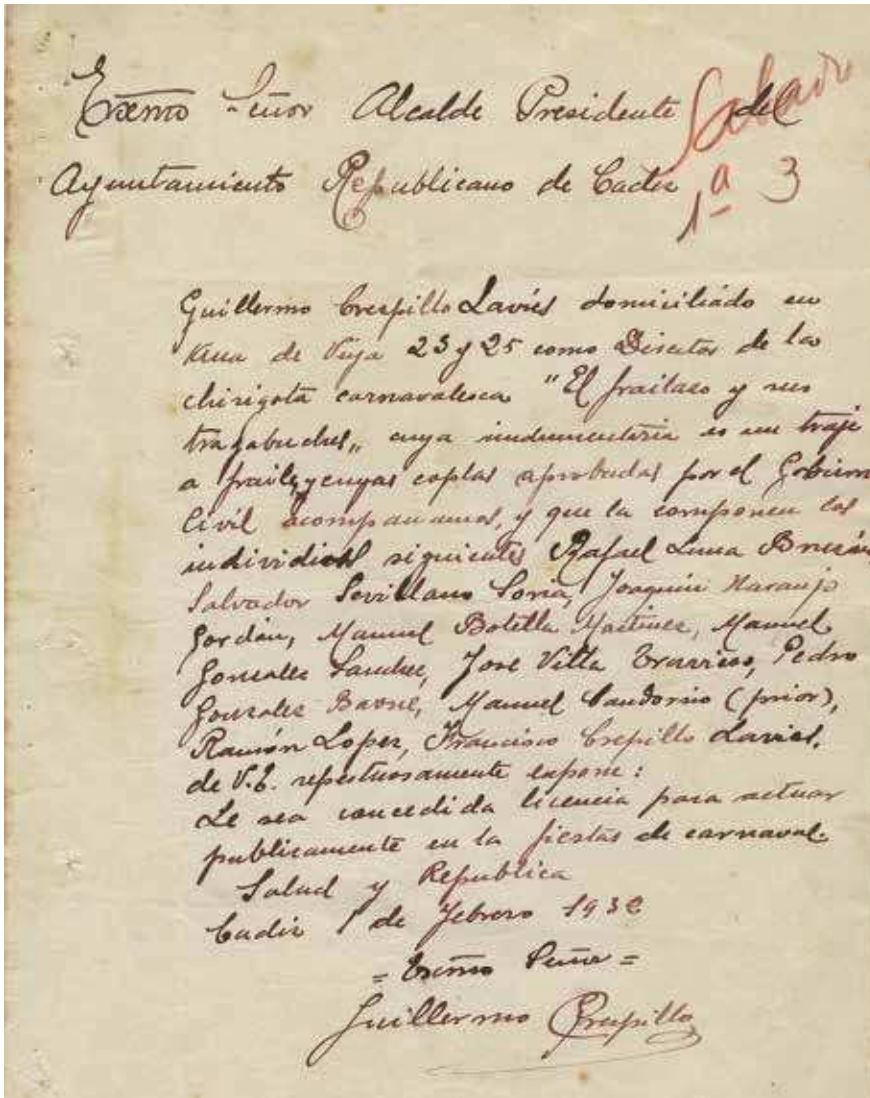 Exsmo Señor Alcalde Presidente del
Sabado
Ayuntamiento Republicano de Cadiz
1ª 3
Guillermo Crespillo Laviés domiciliado en
de Vega 23 y 25 como Director de la
chirigota carnavalesca "El frailaso y sus
tragabuches„ cuya indumentaria es un traje
a fraile, y cuyas coplas aprobadas por el Gobierno
Civil acompañamos, y que la componen los
individuos siguientes Rafael Luna
Salvador Sevillano Soria, Joaquin Naranjo
Gordán, Manuel Botella Martinez, Manuel
Gonzales Sanches, Jose Villa Pedro
Gonzales Manuel (prior),
Ramón Lopez, Francisco Crepillo Laviés.
de V.E. repetuosamente expone:
Le sea concedida licencia para actuar
publicamente en la fiestas de carnaval.
Salud y Republica
Cadiz 1 de Febrero 1932
= Exsmo Señor =
Guillermo Crespillo